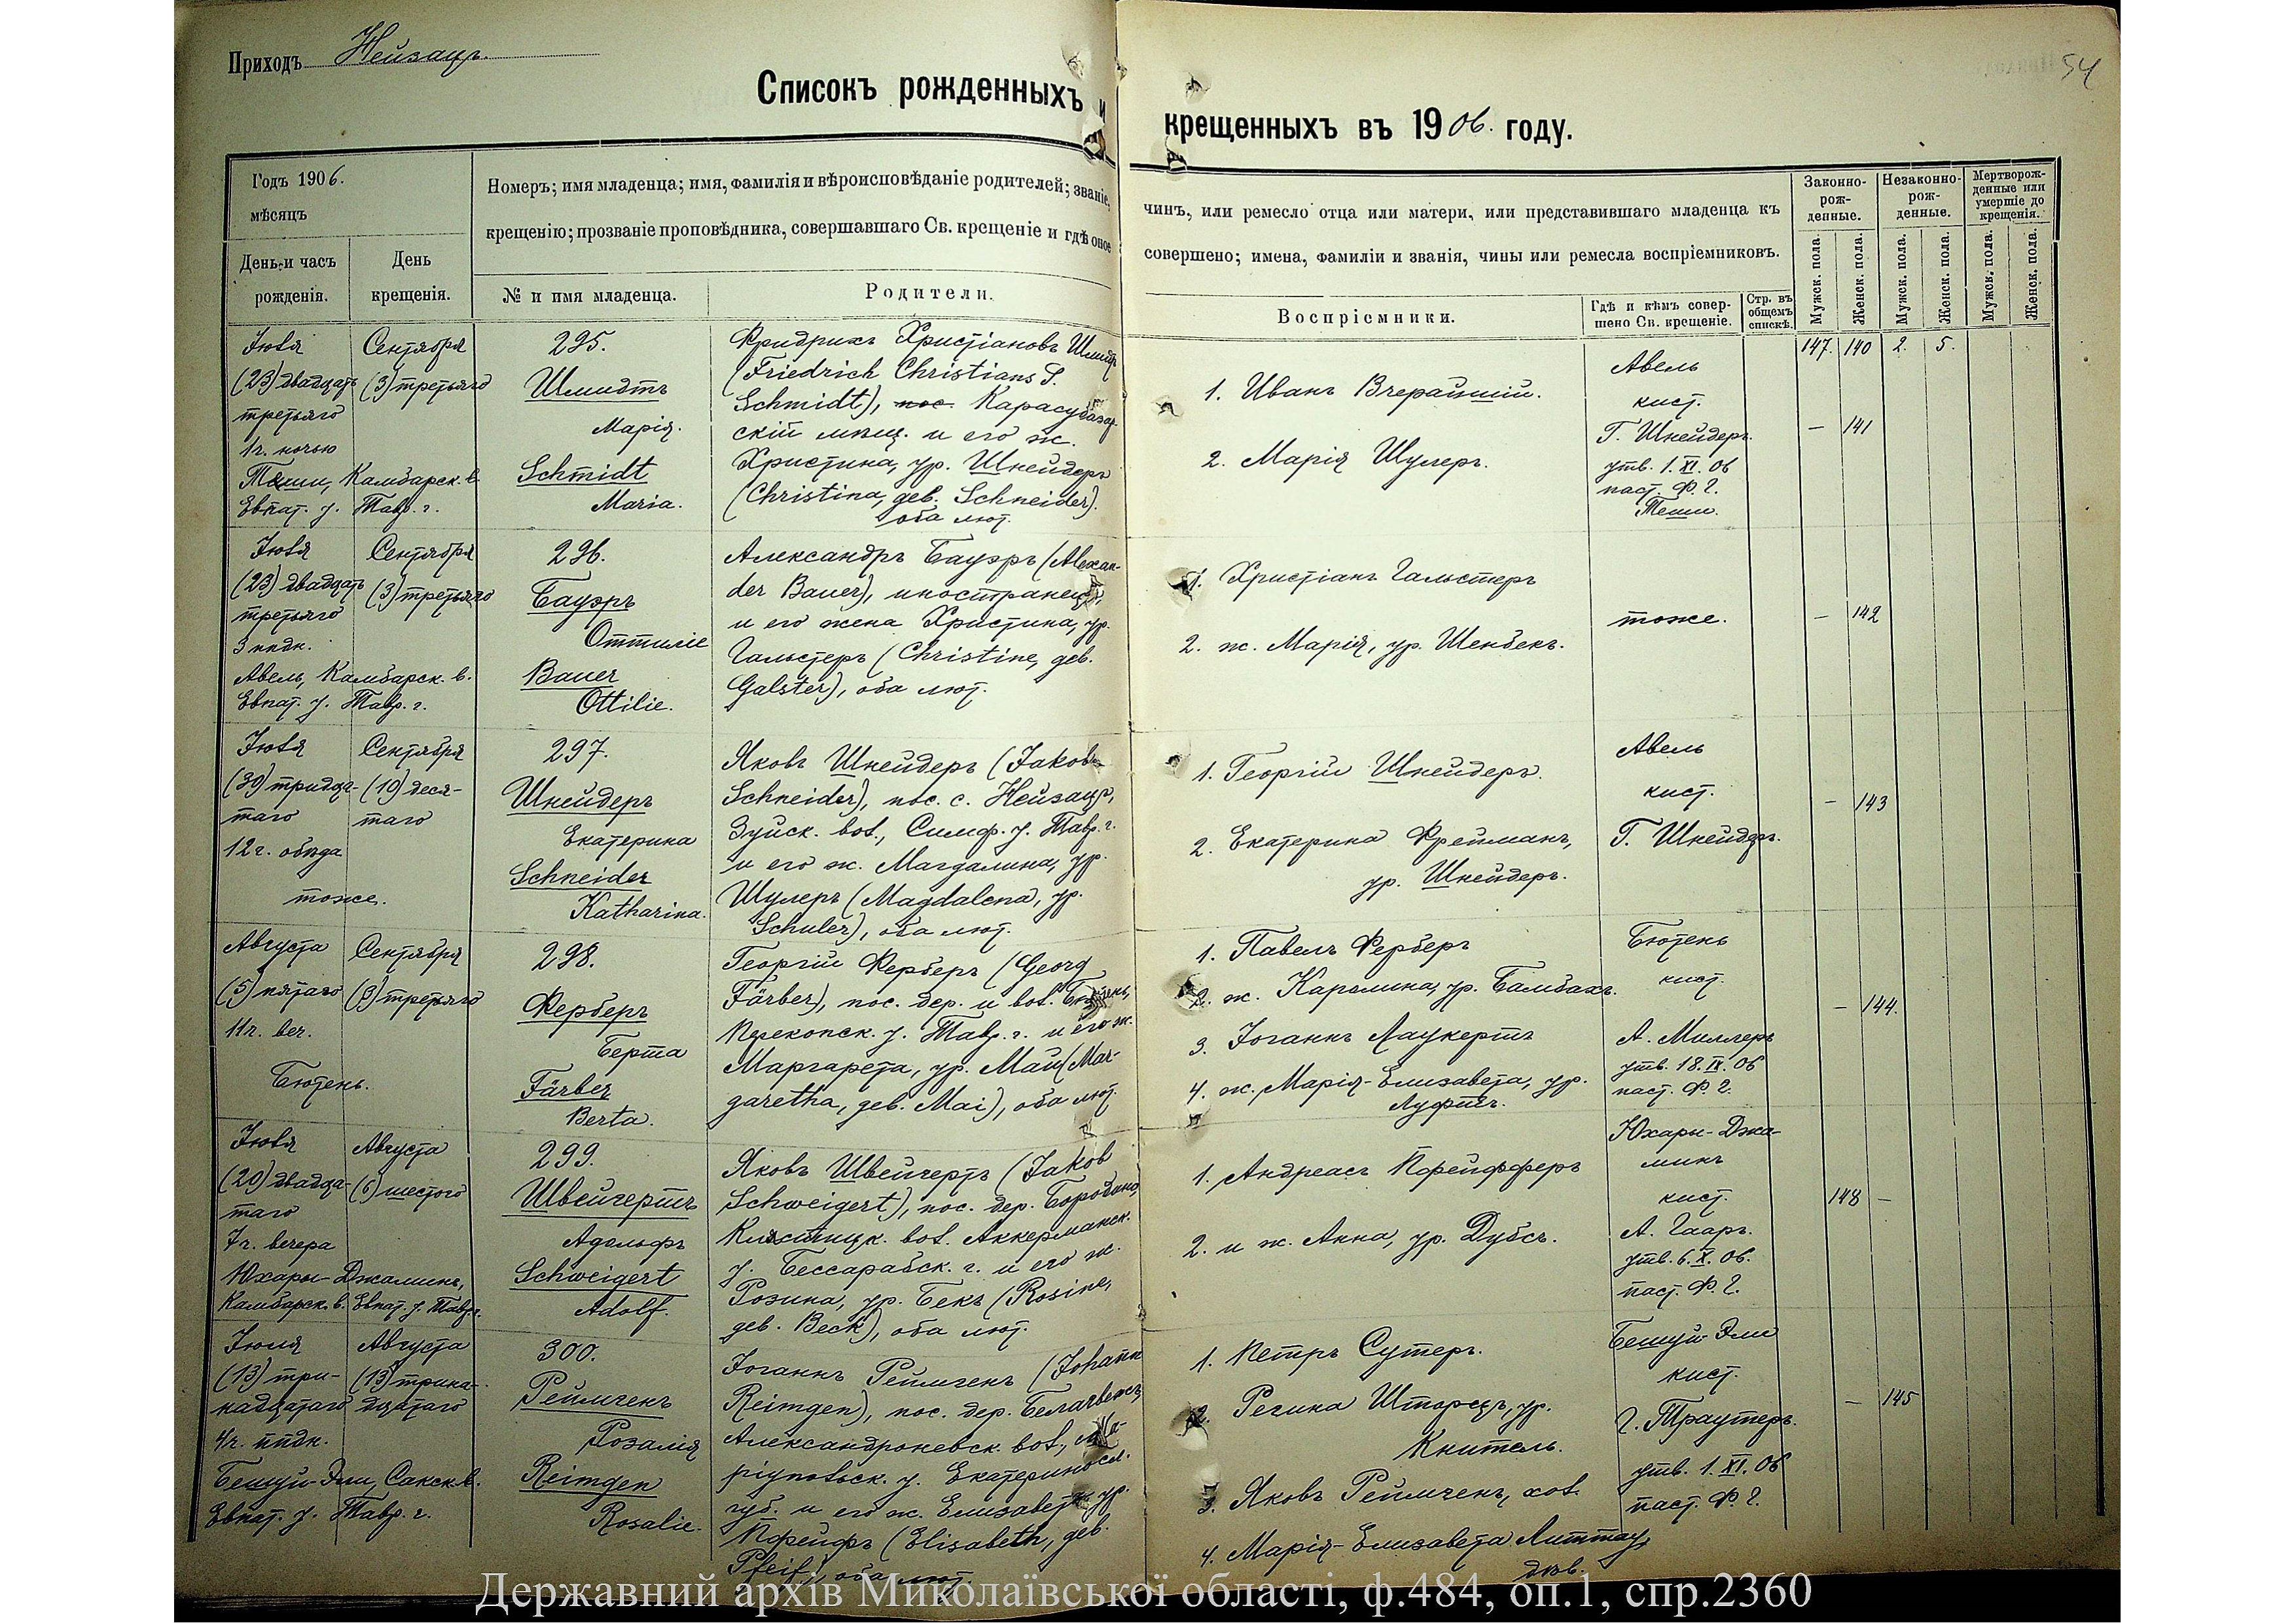 Приходъ Нейзацъ.
54
Списокъ рожденныхъ и крещенныхъ въ 1906. году.
Годъ 1906.
мѣсяцъ
День и часъ рожденія.
День крещенія.
Номеръ; имя младенца; имя, фамилія и вѣроисповѣданіе родителей; званіе,
чинъ, или ремесло отца или матери, или представившаго младенца къ
крещенію; прозваніе проповѣдника, совершавшаго Св. крещеніе и гдѣ оное
совершено; имена, фамиліи и званія, чины или ремесла воспріемниковъ.
№ и имя младенца.
Родители.
Воспріемники.
Гдѣ и кѣмъ совершено Св. крещеніе.
Стр. въ общемъ спискѣ.
Законнорожденные.
Незаконнорожденные.
Мертворожденные или умершіе до крещенія.
Мужск. пола.
Женск. пола.
Мужск. пола.
Женск. пола.
Мужск. пола.
Женск. пола.
147. 140 2. 5.
Іюля
(23) двадцать
третьяго
1 ч. ночью
Сентября
(3) третьяго
Камбарск. в.
Евпат. у. Тавр. г.
295.
Шмидтъ
Марія.
Schmidt
Maria.
Фридрихъ Христіановъ Шмидтъ
(Friedrich Christians S.
Schmidt), пос. Карасубазар-
скій мѣщ. и его ж.
Христина, ур. Шнейдеръ
(Christina, geb. Schneider).
оба лют.
1. Иванъ Вчерайшій.
2. Марія Шулеръ.
Авель
кист.
Г. Шнейдеръ.
утв. 1. XI. 06
паст. Ф. Г.
— 141
Іюля
(23) двадцать
третьяго
3 ппдн.
Сентября
(3) третьяго
Авель, Камбарск. в.
Евпат. у. Тавр. г.
296.
Бауэръ
Оттиліе
Bauer
Ottilie.
Александръ Бауэръ (Alexan-
der Bauer), иностранецъ,
и его жена Христина, ур.
Гальстеръ (Christine, geb.
Galster), оба лют.
1. Христіанъ Гальстеръ
2. ж. Марія, ур. Шенбекъ.
тоже.
— 142
Іюля
(30) тридца-
таго
12 ч. обѣда
Сентября
(10) деся-
таго
тоже.
297.
Шнейдеръ
Екатерина
Schneider
Katharina.
Яковъ Шнейдеръ (Jakob
Schneider), пос. с. Нейзацъ,
Зуйск. вол., Симф. у. Тавр. г.
и его ж. Магдалина, ур.
Шулеръ (Magdalena, ур.
Schuler), оба лют.
1. Георгій Шнейдеръ.
2. Екатерина Фрейманъ,
ур. Шнейдеръ.
Авель
кист.
Г. Шнейдеръ.
— 143
Августа
(5) пятаго
11 ч. веч.
Сентября
(3) третьяго
Бютень.
298.
Ферберъ
Берта
Färber
Berta.
Георгій Ферберъ (Georg
Färber), пос. дер. и вол. Бютень,
Перекопск. у. Тавр. г. и его ж.
Маргарета, ур. Май (Mar-
garetha, geb. Mai), оба лют.
1. Павелъ Ферберъ
2. ж. Каролина, ур. Бамбахъ.
3. Іоганнъ Лаукертъ
4. ж. Марія-Елизавета, ур.
Луфтъ.
Бютень
кист.
А. Миллеръ
утв. 18. IX. 06
паст. Ф. Г.
— 144.
Іюля
(20) двадца-
таго
7 ч. вечера
Августа
(6) шестого
Юхары-Джаминъ,
Камбарск. в. Евпат. у. Тавр. г.
299.
Швейгертъ
Адольфъ
Schweigert
Adolf.
Яковъ Швейгертъ (Jakob
Schweigert), пос. дер. Бородино,
Клястицк. вол. Аккерманск.
у. Бессарабск. г. и его ж.
Розина, ур. Бекъ (Rosine,
geb. Beck), оба лют.
1. Андреасъ Пфейфферъ
2. и ж. Анна, ур. Дубсъ.
Юхары-Джа-
минъ
кист.
А. Гааръ.
утв. 6. X. 06.
паст. Ф. Г.
148 —
Іюля
(13) три-
надцатаго
4 ч. ппдн.
Августа
(13) трина-
дцатаго
Бешуй-Эли, Сакск. в.
Евпат. у. Тавр. г.
300.
Реймгенъ
Розалія
Reimgen
Rosalie.
Іоганнъ Реймгенъ (Johann
Reimgen), пос. дер. Белачвежъ,
Александроневск. вол., Ма-
ріупольск. у. Екатериносл.
губ. и его ж. Елизавета, ур.
Пфейфъ (Elisabeth, geb.
Pfeif), оба лют.
1. Петръ Сутеръ.
2. Регина Шторцъ, ур.
Книтель.
3. Яковъ Реймгенъ, хол.
4. Марія-Елизавета Литтау,
дѣв.
Бешуй-Эли
кист.
Г. Траутеръ.
утв. 1. XI. 06
паст. Ф. Г.
— 145
Державний архів Миколаївської області, ф.484, оп.1, спр.2360